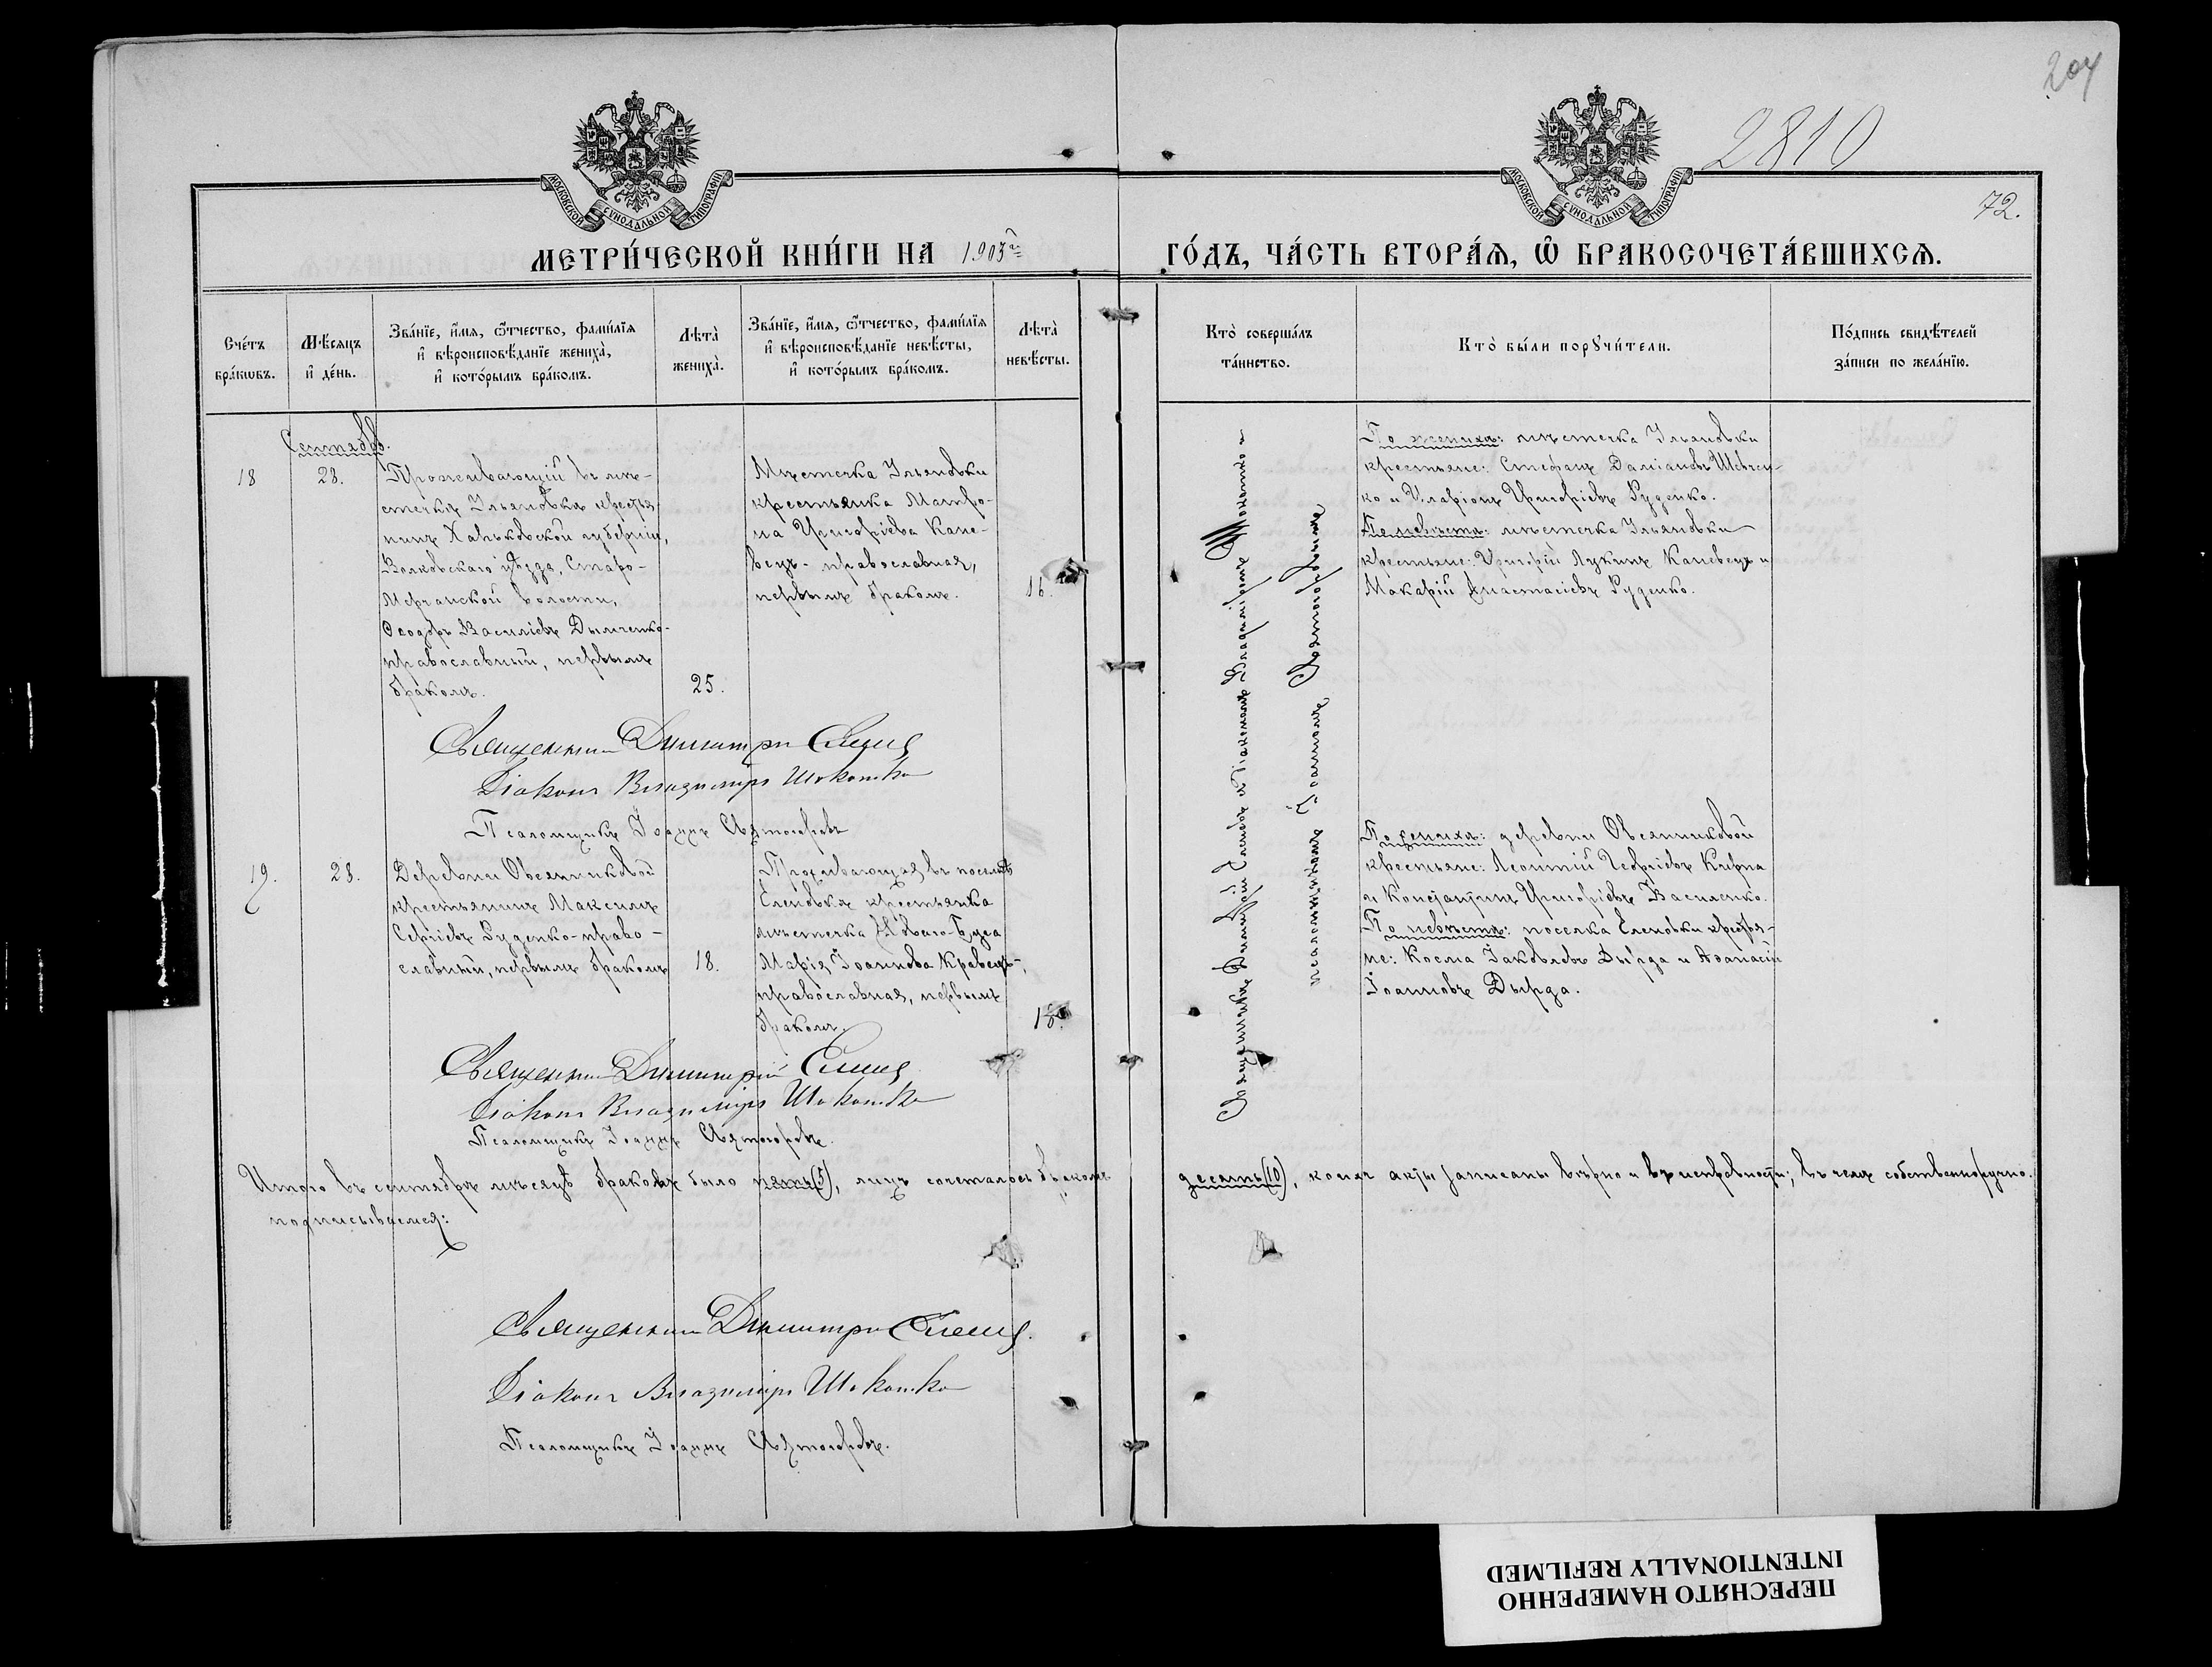 204
2810
72.
МОСКОВСКОЙ СѴНОДАЛЬНОЙ ТИПОГРАФІИ
МОСКОВСКОЙ СѴНОДАЛЬНОЙ ТИПОГРАФІИ
МЕТРИ́ЧЕСКОЙ КНИ́ГИ НА 1903й
ГО́ДЪ, ЧА́СТЬ ВТОРА́Ѧ, Ѽ БРАКОСОЧЕТА́ВШИХСѦ.
Сче́тъ
бра́кѡвъ.
Мѣ́сяцъ
и҆ де́нь.
Зва́нїе, и҆́мѧ, ѻ҆́тчество, фами́лїѧ
и҆ вѣроисповѣ́данїе жениха̀,
и҆ кото́рымъ бра́комъ.
Лѣта̀
жениха̀.
Зва́нїе, и҆́мѧ, ѻ҆́тчество, фами́лїѧ
и҆ вѣроисповѣ́данїе невѣ́сты,
и҆ кото́рымъ бра́комъ.
Лѣта̀
невѣ́сты.
Кто̀ соверша́лъ
та́инство.
Кто̀ бы́ли порꙋчи́тели.
По́дпись свидѣ́телей
за́писи по жела́нїю.
Сентябрь.
18
28.
Проживающій въ мѣ-
стечкѣ Ульяновкѣ крестья
нинъ Харьковской губерніи,
Волковскаго уѣзда, Старо-
Мерчанской волости,
Ѳеодоръ Василіевъ Дымченко-
православный, первымъ
бракомъ.
25.
Мѣстечка Ульяновки
крестьянка Матро-
на Григоріева Кане-
вецъ - православная,
первымъ бракомъ.
16.
Священникъ Димитрій
Діаконъ Владиміръ Шокотко
Псаломщикъ Іоаннъ Святогоровъ
Священникъ Димитрій съ Діакономъ Владиміромъ Шокотко и
псаломщикомъ Іоанномъ
По женихѣ: мѣстечка Ульяновки
крестьяне: Стефанъ Даміановъ Шевчен-
ко и Иларіонъ Григоріевъ Руденко.
По невѣстѣ: мѣстечка Ульяновки
крестьяне: Григорій Лукинъ Каневецъ и
Макарій Анастасіевъ Руденко.
19.
28.
Деревни Овсянниковой
крестьянинъ Максимъ
Сергіевъ Руденко - право-
славный, первымъ бракомъ
18.
Проживающая въ поселкѣ
Еленовкѣ крестьянка
мѣстечка
Марія Іоаннова Кравецъ-,
православная, первымъ
бракомъ.
18.
По женихѣ: деревни Овсянниковой
крестьяне: Леонтій Георгіевъ Кирпа
и Константинъ Григоріевъ Василенко.
По невѣстѣ: поселка Еленовки крестья-
не: Косма Іаковлевъ Дырда и Аѳанасій
Іоанновъ Дырда.
Священникъ Димитрій
Діаконъ Владиміръ Шокотко
Псаломщикъ Іоаннъ Святогоровъ.
Итого въ сентябрѣ мѣсяцѣ браковъ было пять (5), лицъ сочеталось бракомъ десять (10), коихъ акты записаны вѣрно и въ исправности; въ чемъ собственноручно.
подписываемся:
Священникъ Димитрій
Діаконъ Владиміръ Шокотко
Псаломщикъ Іоаннъ Святогоровъ.
ПЕРЕСНЯТО НАМЕРЕННО
INTENTIONALLY REFILMED